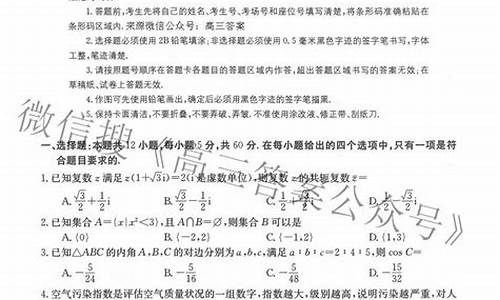 1.答题前,考生先将自己的姓名、考生号、考场号和座位号填写清楚,将条形码准确粘贴在
条形码区域内.来源微信公众号:高三答案
2.选择题必须使用2B铅笔填涂;非选择题必须使用0.5毫米黑色字迹的签字笔书写,字体
工整,笔迹清楚.
3.请按照题号顺序在答题卡各题目的答题区域内作答,超出答题区域书写的答案无效;在
草稿纸、试卷上答题无效.
4.作图可先使用铅笔画出,确定后必须用黑色字迹的签字笔描黑.
5.保持卡面清洁,不要折叠,不要弄破、弄皱,不准使用涂改液、修正带、刮纸刀.
一、选择题:本题共12小题,每小题5分,共60分.在每小题给出的四个选项中,只有一项是符
合题目要求的.
1.已知复数z满足z(1+√3i)=2(i是虚数单位),则复数z的共轭复数z̄=
A.√3/2+1/2i B.√3/2-1/2i C.1/2+√3/2i D.1/2-√3/2i
2.已知集合A={x|x²<3},且A∩B=∅,则集合B可以是
A.{0} B.{-2,2} C.{-1,2} D.{1,3}
3.已知△ABC的内角A,B,C的对边分别为a,b,c,满足a:b:c=2:4:5,则cos C=
A.-5/24 B.-5/16 C.-5/8 D.-15/32
4.空气污染指数是评估空气质量状况的一组数字,指数越大,级别越高,说明污染越严重,对人
微信搜《高三答案公众号》